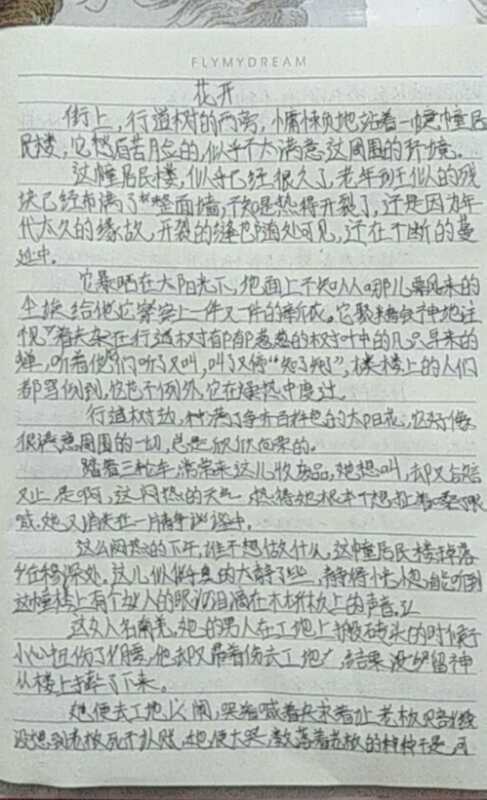 FLYMYDREAM
花开
街上，行道树的两旁，慵懒地站着一幢幢居
民楼，它愁眉苦脸的，似乎不大满意这周围的环境。
这幢居民楼，似乎已经很久了，老年斑似的
块已经布满了整面墙，不知是热得开裂了，还是因为年
代太久的缘故，开裂的缝也随处可见，还在不断的蔓
延中。
它暴晒在大阳光下，地面上不知从哪儿飘风来的
尘埃给它穿上一件又一件的新衣。它聚精会神地注
视着夹杂在行道树郁郁葱葱的树叶中的几只早来的
蝉，听着他们叫了又叫，叫了又停“知了知了”，楼上的人们
都写倒到，它也不例外，它在燥热中度过。
行道树边，种满了争奇百样色的太阳花，它好像
很满意周围的一切，总是欣欣向荣的。
踏着三轮车，常常来这儿收废品，她想叫，却又
又止。是啊，这闷热的天气，热得她根本不想扯着
喊。她又消失在一片静谧中。
这么闷热的下午，谁不想做什么，这幢居民楼
深处。这儿似乎的太静了些，静得小心翼能听到
这幢楼上有个女人的眼泪滴在木材板上的声音。
这女人名，她的男人在工地上搬砖头的时候
小心扭伤了腰，他却又带着伤去工地，结果没留神
从楼上摔了下来。
她便去工地以闹，哭着喊着央求着让老板赔钱
没想到老板死不认账，她便大哭，数落着老板的种种不是，可